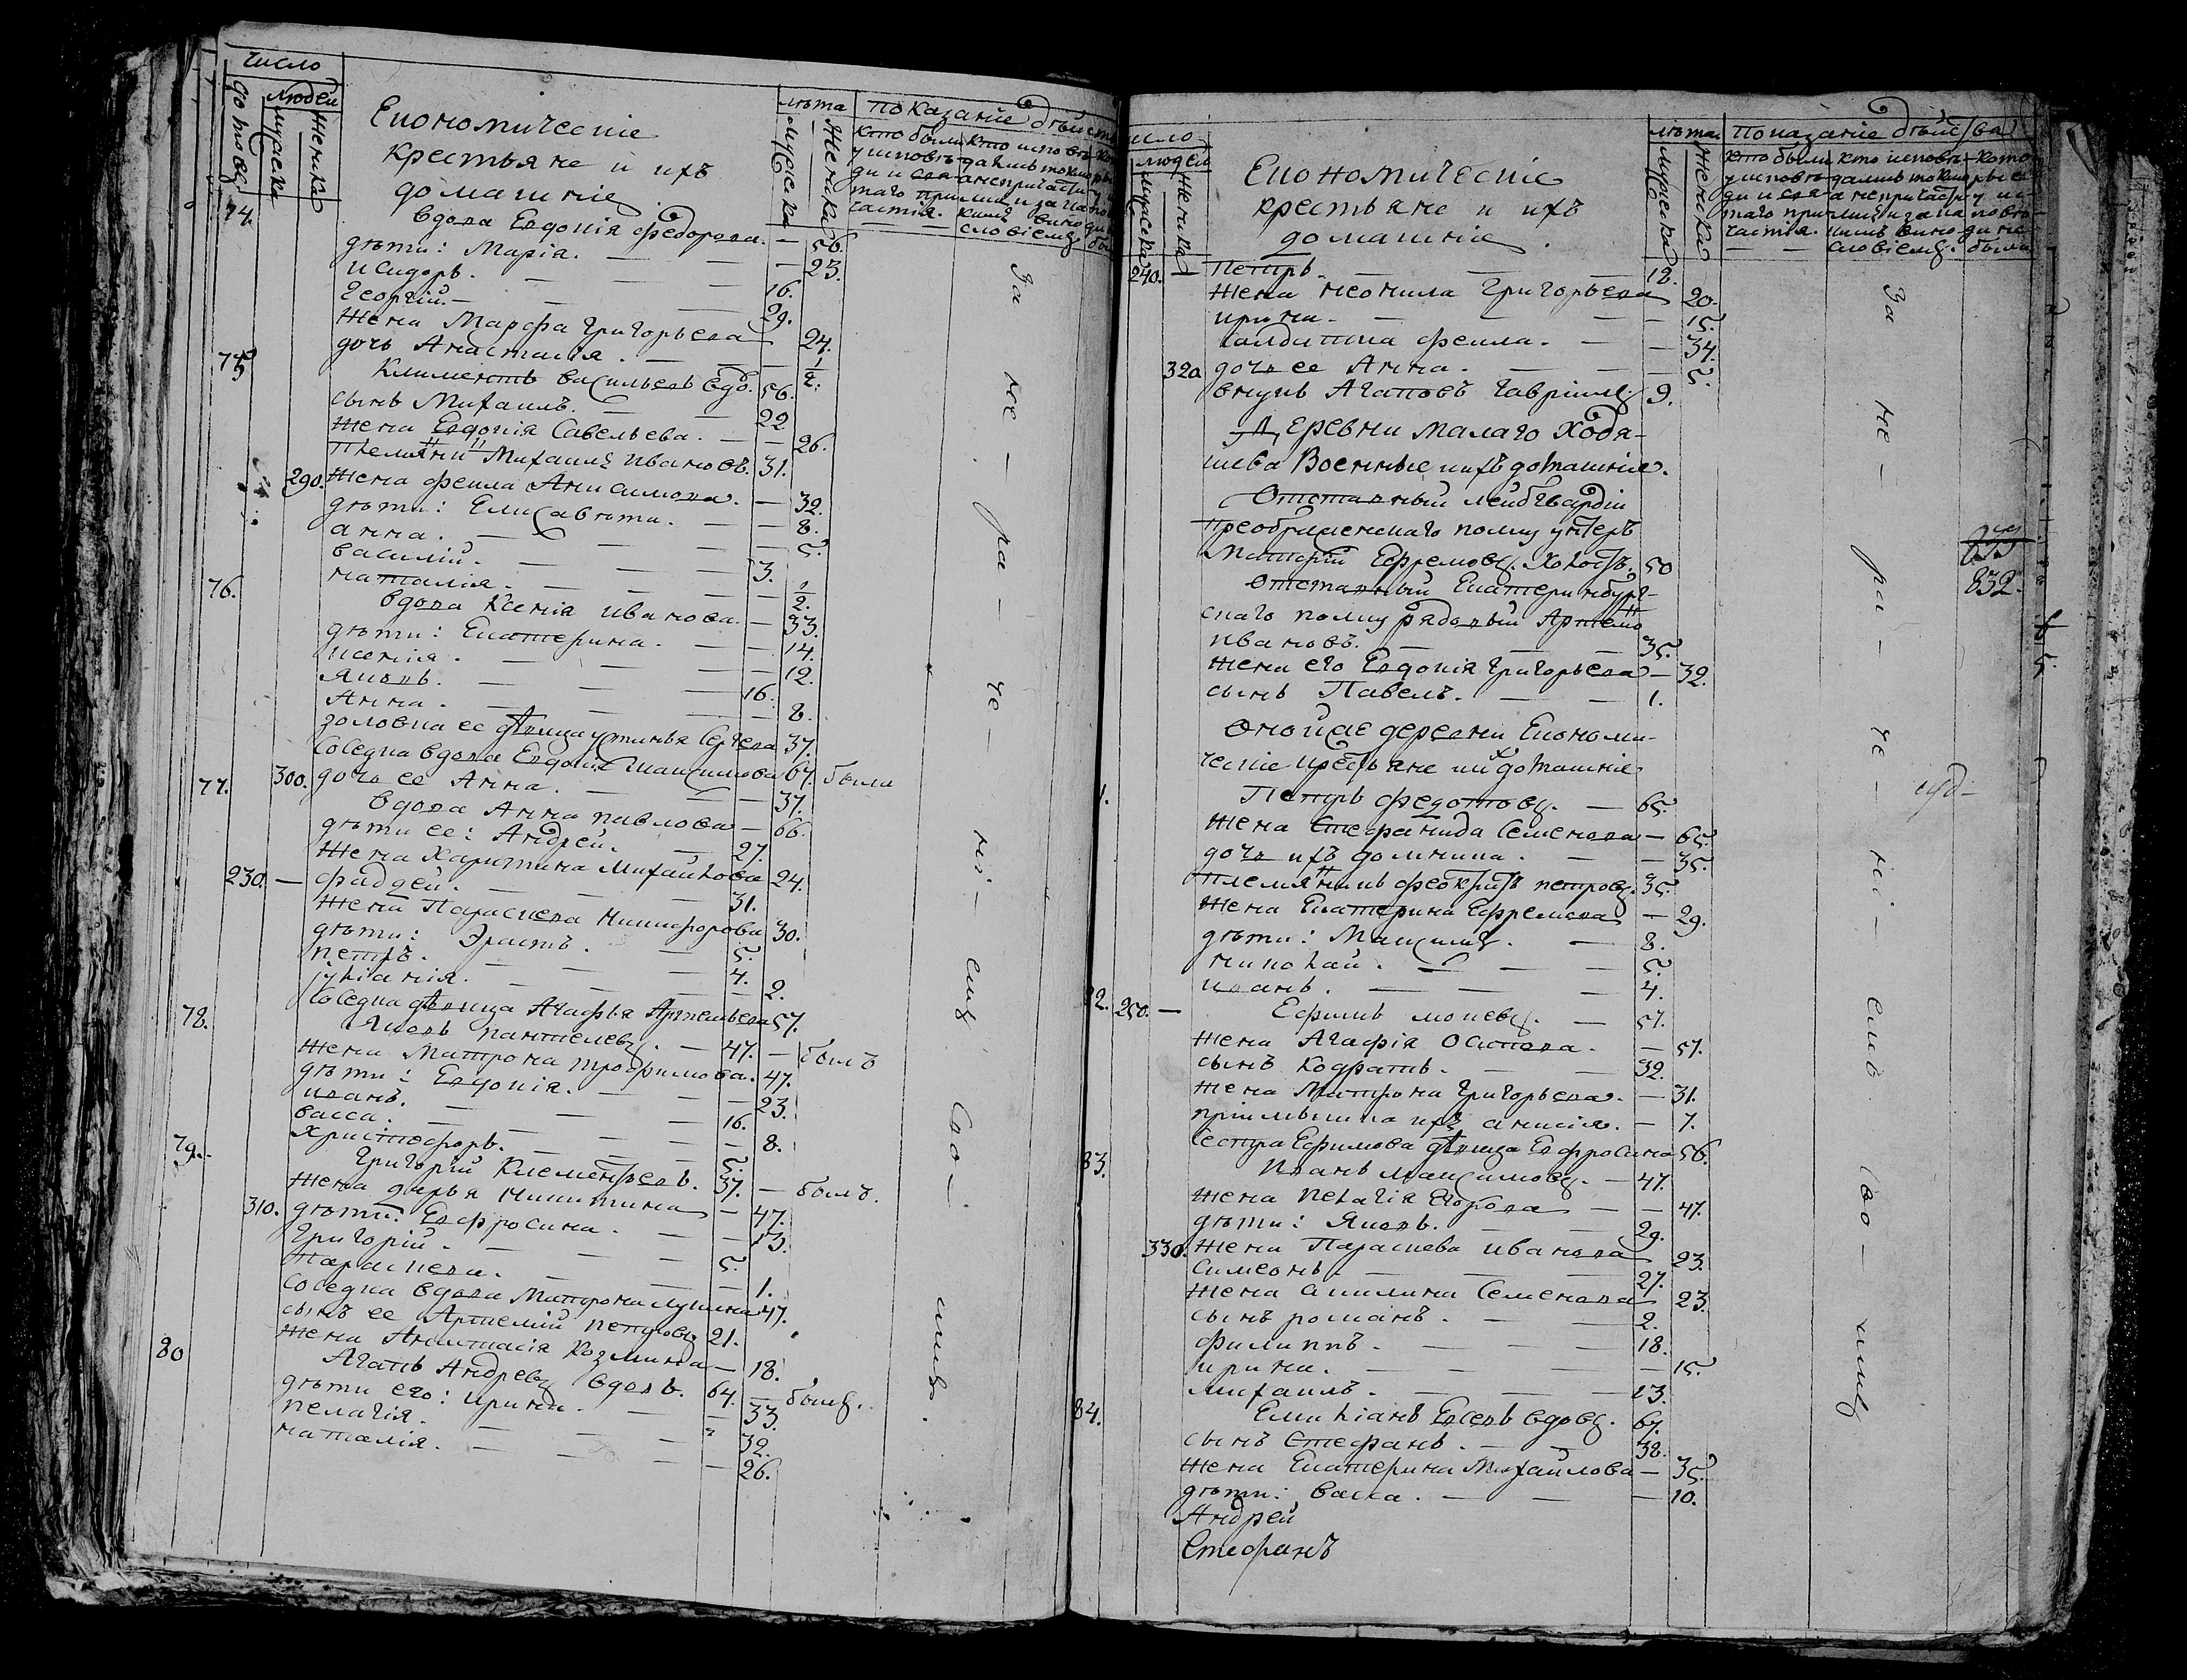 число
людей
домовъ
мужеска
женска
Економическіе
крестьяне и ихъ
домашніе
лѣта
мужеска
женска
показаніе дѣйст
74. вдова Евдокія Федорова. — 56.
дѣти: Марія. — 23.
исидоръ. — 16.
георгій. — 29.
жена Марфа Григорьева 24.
дочь Анастасія. — 1/2.
75 Климентъ васильевъ вдо. 56.
сынъ Михаилъ. — 22
жена Евдокія Савельева. — 26.
племянни Михаилъ Ивановъ. 31.
290. жена фекла Анисимова. — 32.
дѣти: Елисавета. — 8.
анна. — 5.
василій. — 3.
наталія. — 1/2.
76. вдова Ксенія иванова. — 33.
дѣти: Екатерина. — 14.
ксенія. — 12.
Яковъ. — 16.
Анна. — 8.
золовка ее дѣвица устинья Сергеева 37.
соседка вдова Евдокія Максимова 67. были
300. дочь ее Анна. — 37.
77. вдова Анна павлова — 66.
дѣти ее: Андрей. — 27.
жена Харитина Михайлова 24.
230. — фаддей. — 31.
жена Параскева Никифорова 30.
дѣти: Эрастъ. — 5.
петръ. — 4.
іуліанія. — 2.
соседка дѣвица Агафья Артемьева 57.
78. Яковъ пантелевъ. — 47. — былъ
жена Матрона трофимова. 47.
дѣти: Евдокія. — 23.
иванъ. — 16.
васса. — 8.
Христофоръ. — 5.
79. Григорій Клементьевъ. 37. — былъ.
жена дарья никитина — 47.
310. дѣти: Евфросина. — 13.
Григорій. — 5.
Параскева. — 1.
соседка вдова Матрона лукина 47.
сынъ ее Артемій петровъ 21.
жена Анастасія Козмина — 18.
80 Агапъ Андреевъ вдовъ. 64. — былъ.
дѣти его: ирина. — 33.
пелагія. — 32.
наталія. — 26.
За не — ра — че — ні — емъ Сво — имъ.
исло
людей
мужеска
женска
Економическіе
крестьяне и ихъ
домашніе.
лѣта
мужеска
женска
Показаніе дѣйства
240. — Петръ. — 18.
жена неонила Григорьева 20.
ирина. — 15.
солдатка фекла. — 34.
320 дочь ее Анна. — 5.
внукъ Агаповъ Гавріилъ 9.
Деревни Малаго Ходя-
шева Военные ихъ домашніе.
Отставный лейбгвардіи
преображенскаго полку унтеръ
Матвѣй Ефремовъ. холостъ. 50
Отставный Екатеринбург-
скаго полку рядовый Артемій
ивановъ. — 35.
жена его Евдокія Григорьева — 32.
сынъ Павелъ. — 1.
Оной же деревни Економи-
ческіе крестьяне ихъ домашніе
1. Петръ федотовъ. — 65.
жена Стефанида Семенова — 65.
дочь ихъ домника. — 35.
племянникъ феоктистъ петровъ. 35.
жена Екатерина Ефремова — 29.
дѣти: Максимъ. — 8.
николай. — 5.
иванъ. — 4.
82. 250. — Ефимъ мокеевъ. — 57.
жена Агафія Осипова. — 57.
сынъ Кодратъ. — 32.
жена Матрона Григорьева. — 31.
пріимышка ихъ анисія. — 7.
сестра Ефимова дѣвица Евфросина 56.
83. Иванъ Максимовъ. — 47.
жена пелагія Егорова — 47.
дѣти: Яковъ. — 29.
330. жена Параскева иванова 23.
Симеонъ. — 27.
жена акилина Семенова 23.
сынъ романъ. — 2.
филиппъ. — 18.
ирина. — 15.
михаилъ. — 13.
84. Емиліанъ Евсевъ вдовъ. 67.
сынъ Стефанъ. — 38.
жена Екатерина Михайлова — 35.
дѣти: васса. — 10.
Андрей
Стефанъ
За не — ра — че — ні — емъ Сво — имъ
832.